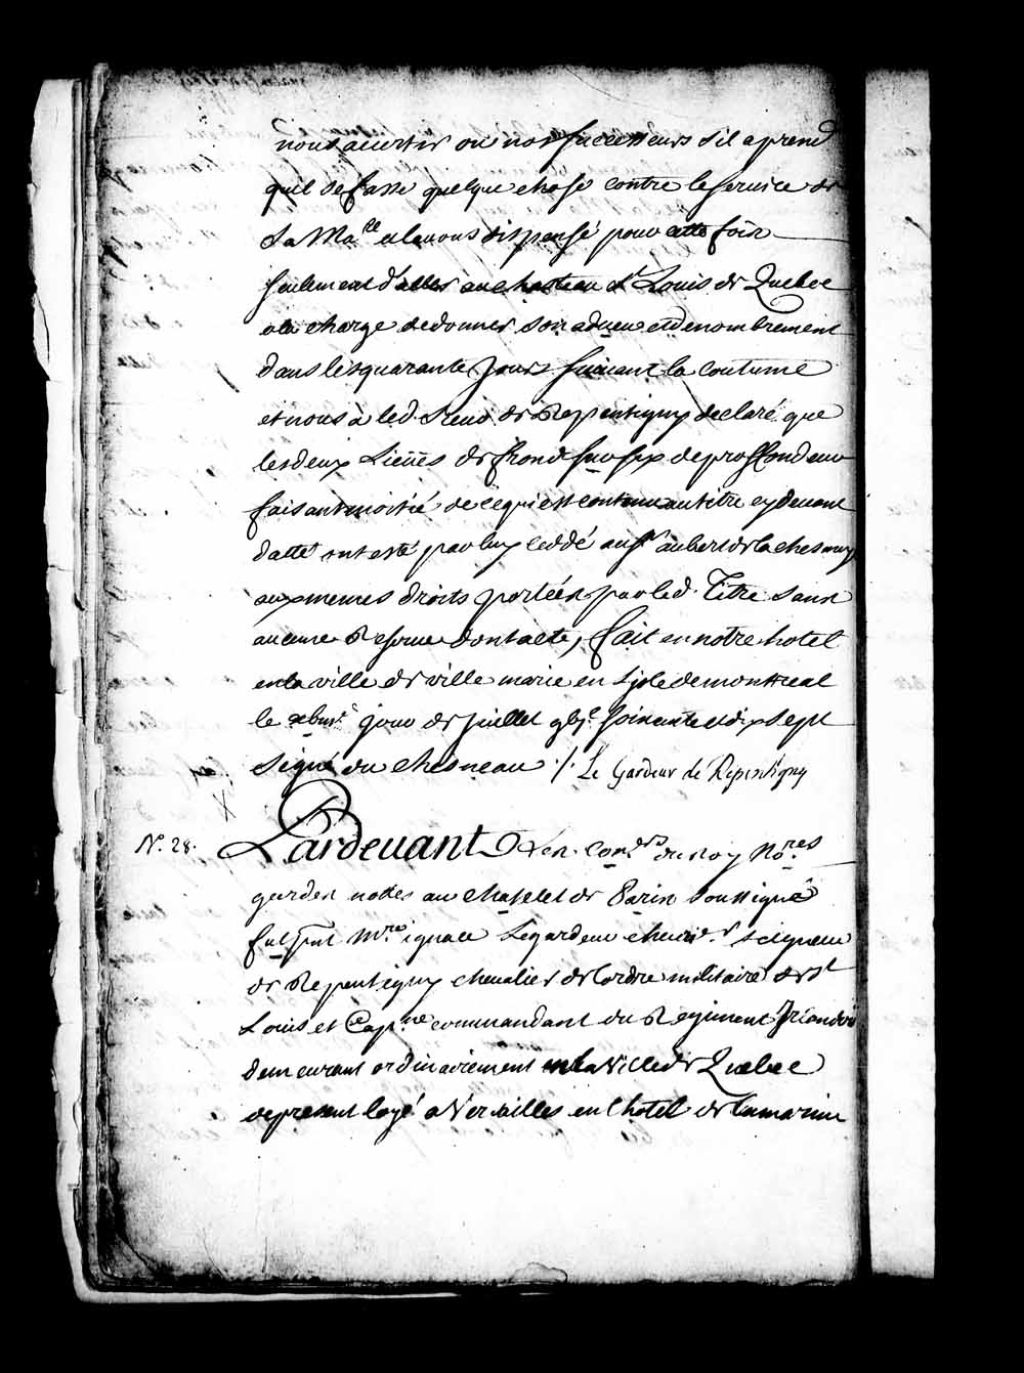 nous avertir ou nos successeurs s'il aprend
quil se fasse quelque chose contre le service de
sa Ma.té et lavons dispensé pour cette fois
seulement d'aller au chasteau St Louis de Quebec
a la charge de donner son adueu et denombrement
dans les quarante jours suivant la coutume
et nous à led. Sieur de Repentigny declaré que
les deux Lieües de front sur six de proffondeur
faisant moitié de ce qui est contenu au titre cy devant
datté ont esté par luy ceddé au Sr aubert de la chesnay
aux memes droits portées par led. Titre sans
aucune Reserve dont acte, fait en notre hotel
en la ville de ville marie en Isle de montreal
le jour de juillet gbjc soixante et dix sept
Signé du chesneau ./. Le Gardeur de Repentigny
N.º 28. Pardevant Les Con.ers du Roy No.res
gardes nottes au Chatelet de Paris soussignés
fut pnt M.re ignace Legardeur Seigneur
de Repentigny chevalier de lordre militaire de St
Louis et Cap.ne commandant du Regiment
demeurant ordinairement en la Ville de Quebec
de present logé a Versailles en lhotel de la marine